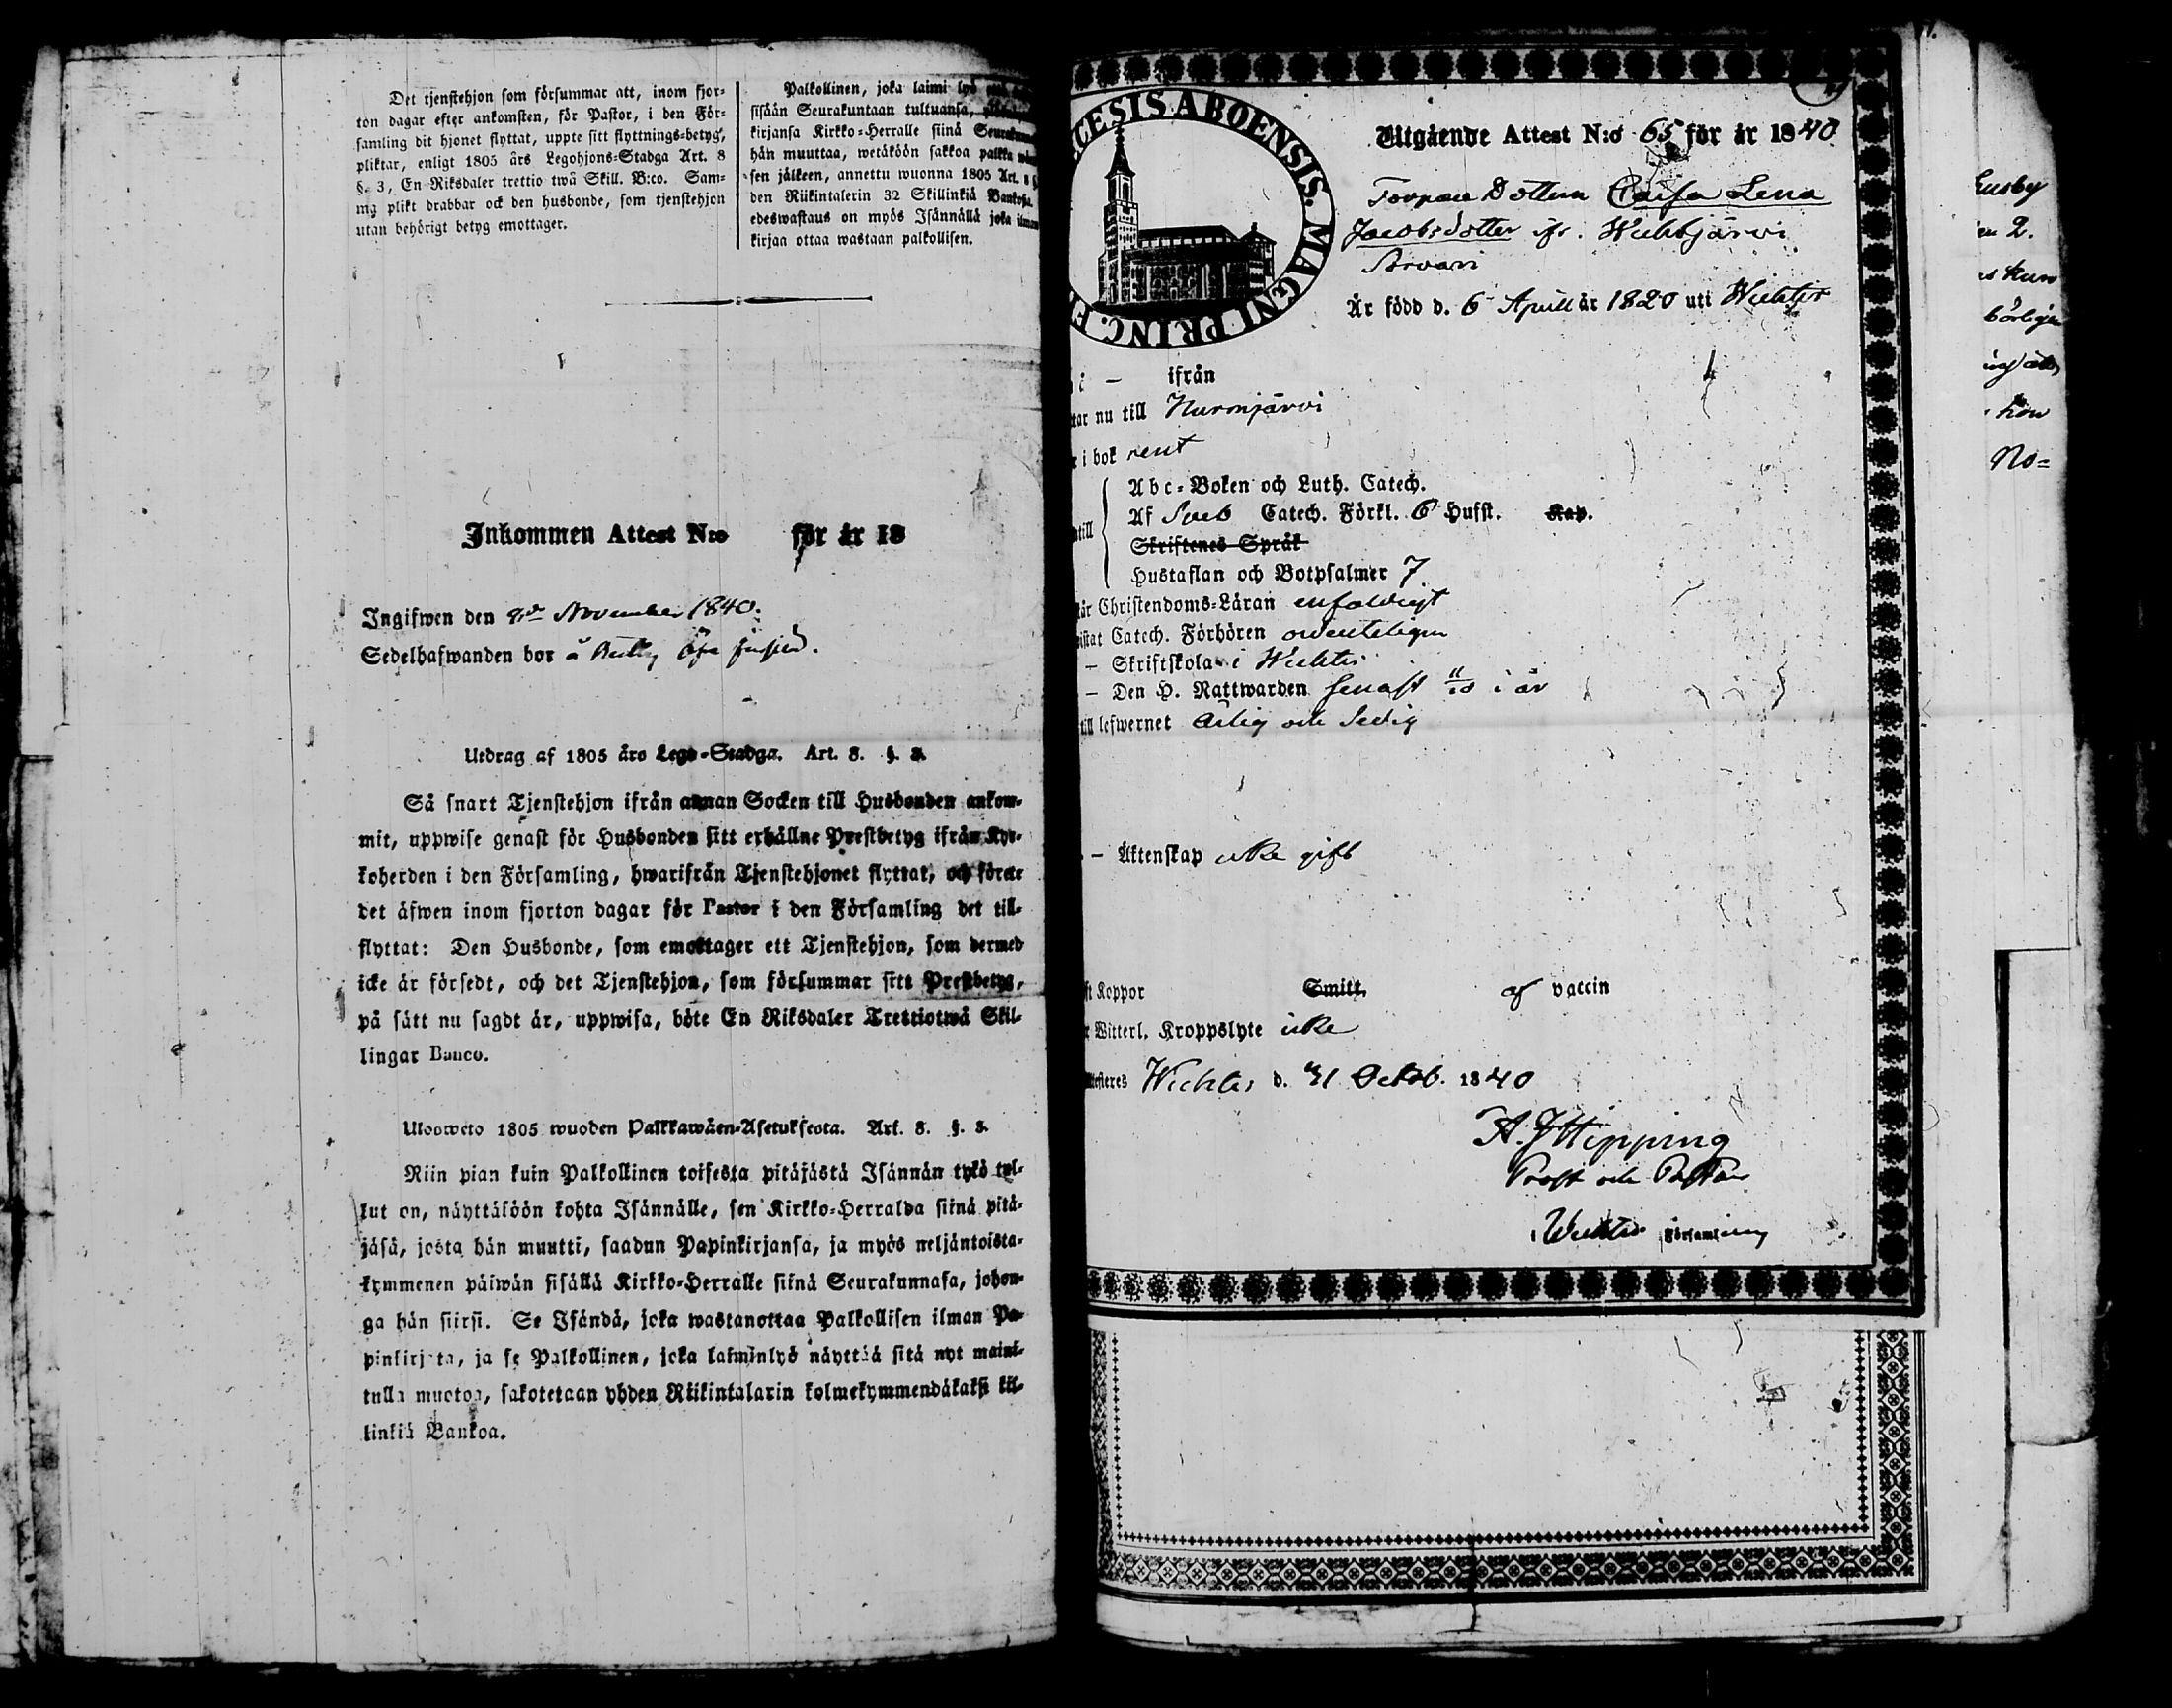 Det tjenstehjon som försummar att, inom fjor-
ton dagar efter ankomsten, för Pastor, i den För-
samling dit hjonet flyttat, uppte sitt flyttnings-betyg,
pliktar, enligt 1805 års Legohjons-Stadga Art. 8
§. 3, En Riksdaler trettio twå Skill. B:co. Sam-
ma plikt drabbar ock den husbonde, som tjenstehjon
utan behörigt betyg emottager.
Palkollinen, joka laimi lyö
sisään Seurakuntaan tultuansa,
kirjansa Kirkko-Herralle siinä
hän muuttaa, wetäköön sakkoa palkka
sen jälkeen, annettu wuonna 1805 Art. 8
den Riikintalerin 32 Skillinkiä Bankosa.
edeswastaus on myös Isännällä joka ilman
kirjaa ottaa wastaan palkollisen.
Inkommen Attest N:o för år 18
Ingifwen den November 1840.
Sedelhafwanden bor å
Utdrag af 1805 års Lego-Stadga. Art. 8. §. 3.
Så snart Tjenstehjon ifrån annan Socken till Husbonden ankom-
mit, uppwise genast för Husbonden sitt erhållne Prestbetyg ifrån Kyr-
koherden i den Församling, hwarifrån Tjenstehjonet flyttat, och förete
det äfwen inom fjorton dagar för Pastor i den Församling det till-
flyttat: Den Husbonde, som emottager ett Tjenstehjon, som dermed
icke är försedt, och det Tjenstehjon, som försummar sitt Prestbetyg,
på sätt nu sagdt är, uppwisa, böte En Riksdaler Trettiotwå Skil-
lingar Banco.
Ulosweto 1805 wuoden Palkkawäen-Asetuksesta. Art. 8. §. 3.
Niin pian kuin Palkollinen toisesta pitäjästä Isännän tykö tul-
lut on, näyttäköön kohta Isännälle, sen Kirkko-Herralda siinä pitä-
jäsä, josta hän muutti, saadun Papinkirjansa, ja myös neljäntoista-
kymmenen päiwän sisällä Kirkko-Herralle siinä Seurakunnasa, johon-
ga hän siirsi. Se Isändä, joka wastanottaa Palkollisen ilman Pa-
pinkirjata, ja se Palkollinen, joka laiminlyö näyttää sitä nyt maini-
tulla muotoa, sakotetaan yhden Riikintalarin kolmekymmendäkaksi kil-
linkiä Bankoa.
CESIS ABOENSIS. MAGNI PRINC. F
Utgående Attest N:o 65 för år 1840
Torpare Dottern Caisa Lena
Jacobsdotter ifr. Wichtjärvi
Är född d. 6 April år 1820 uti Wichtis
ifrån
tar nu till Nurmjärvi
i bok rent
Abc-Boken och Luth. Catech.
Af Sveb Catech. Förkl. 6 Hufst. Kap.
till
Skriftenes Språk
Hustaflan och Botpsalmer 7
Christendoms-Läran enfaldigt
istat Catech. Förhören ordenteligen
– Skriftskola i Wichtis
– Den H. Nattwarden senast 11/10 i år
till lefwernet ärlig och sedig
– Äktenskap icke gift
Koppor Smitt. af vaccin
Witterl. Kroppslyte icke
Wichtis d. 31 Octob. 1840
A. J Hipping
Prost och Pastor
i Wichtis Församling
Husby
2.
kun
hon
No=